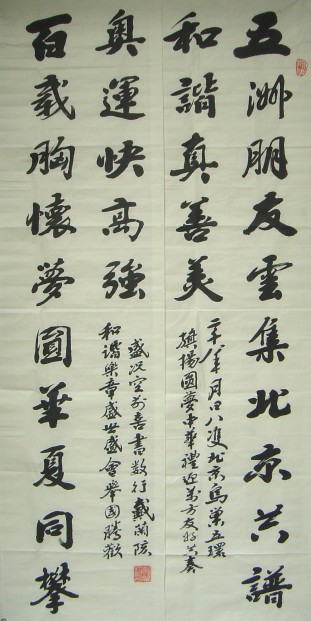 五洲朋友雲集北京共譜
和諧真善美
北京鳥巢五環
旗揚國夢中華禮迎萬方友好共奏
奥運快高強
和諧樂章盛世盛會舉國騰歡
盛况空前喜書数行戴蘭
百載胸懷夢圓華夏同攀